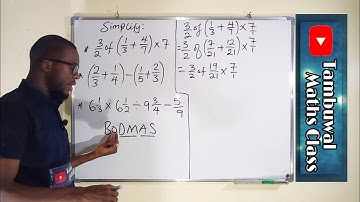 Simplify:
* 3/2 of (1/3 + 4/7) × 7
(2/3 + 1/4) − (1/5 + 2/3)
* 6 1/3 × 6 1/2 ÷ 9 3/4 − 5/9
BODMAS
3/2 of (1/3 + 4/7) × 7/1
= 3/2 of (7/21 + 12/21) × 7/1
= 3/2 of 19/21 × 7/1
Tambuwal
Maths Class